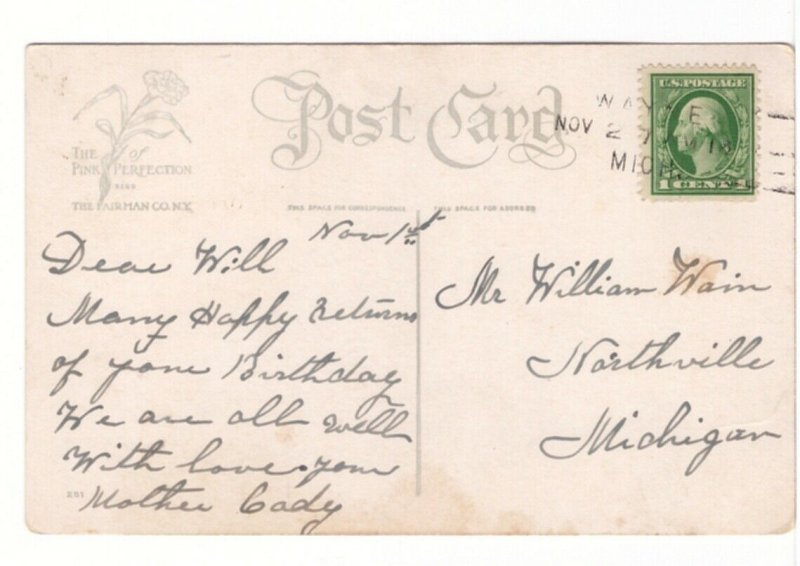 Post Card
U.S. POSTAGE
1 CENT 1
WAYNE
NOV 2
MICH.
THE of
PINK PERFECTION
THE FAIRMAN CO. N.Y.
THIS SPACE FOR CORRESPONDENCE
THIS SPACE FOR ADDRESS
Nov 1st
Dear Will
Many Happy Returns
of your Birthday
We are all well
With love your
Mother Cady
Mr William Wain
Northville
Michigan